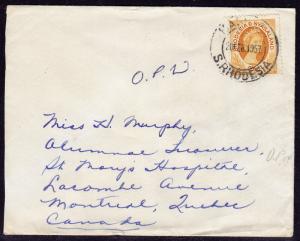 RHODESIA & NYASALAND
1957
S. RHODESIA
O.P.W
Miss H. Murphy,
Alumnae Treasurer,
St Mary's Hospital,
Lacombe Avenue
Montreal, Quebec
Canada